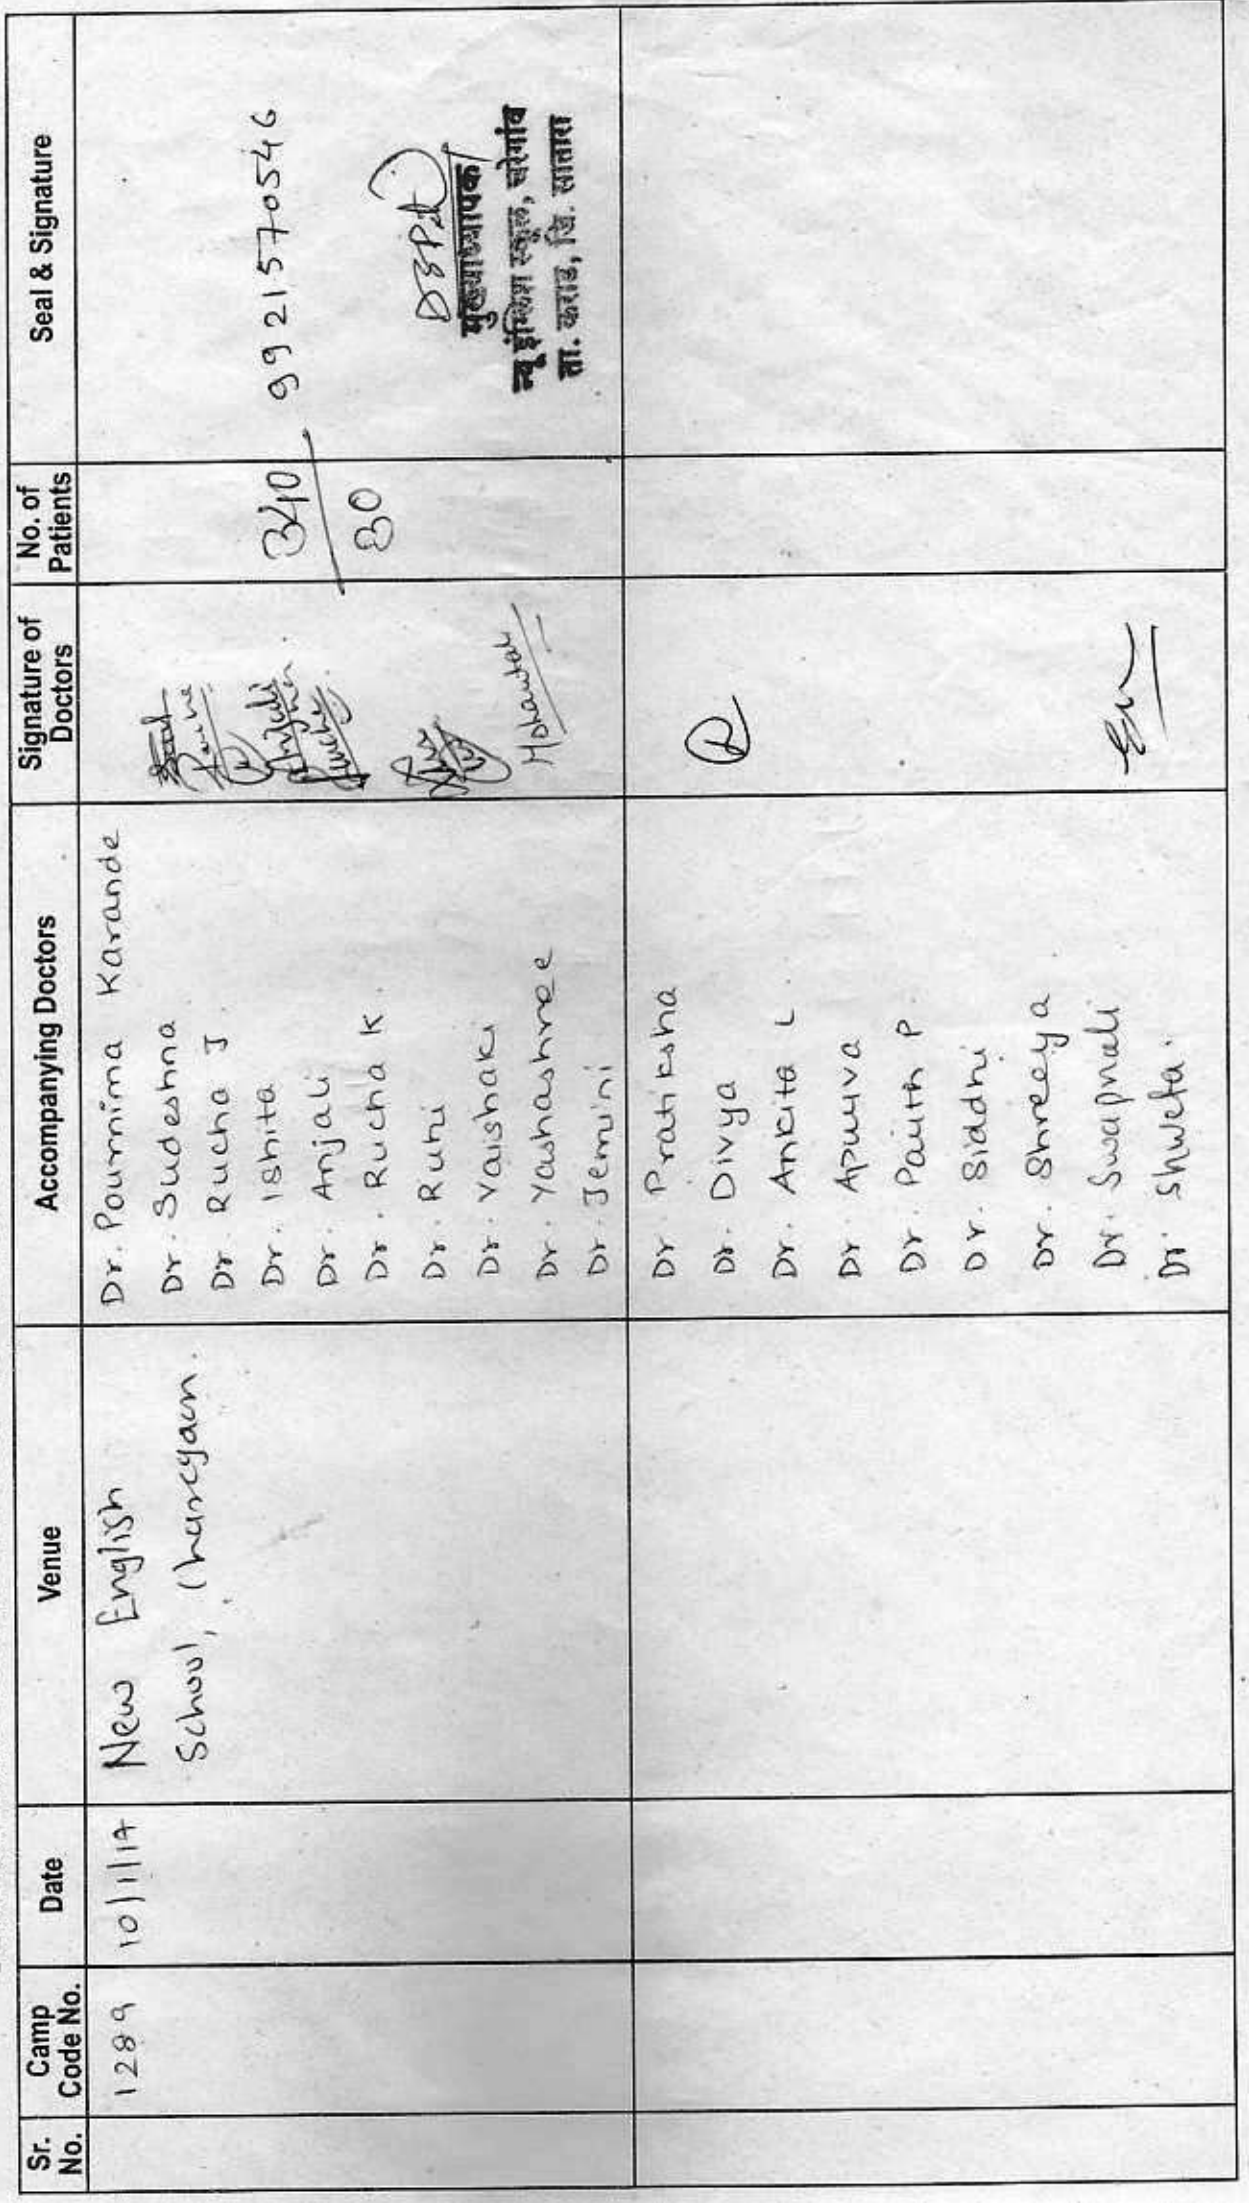 Sr. No.
Camp Code No.
Date
Venue
Accompanying Doctors
Signature of Doctors
No. of Patients
Seal & Signature
1289
10/1/17
New English
School, Charegaon.
Dr. Pournima Karande
Dr. Sudeshna
Dr. Rucha J.
Dr. Ishita
Dr. Anjali
Dr. Rucha K.
Dr. Ruhi
Dr. Vaishaki
Dr. Yashashree
Dr. Jemini
Mohantak
340
30
9921570546
मुख्याध्यापक
न्यू इंग्लिश स्कूल, चरेगांव
ता. कराड, जि. सातारा
Dr Pratiksha
Dr. Divya
Dr. Ankita L.
Dr Apurva
Dr. Parth P.
Dr. Siddhi
Dr. Shreeya
Dr. Swapnali
Dr. Shweta.